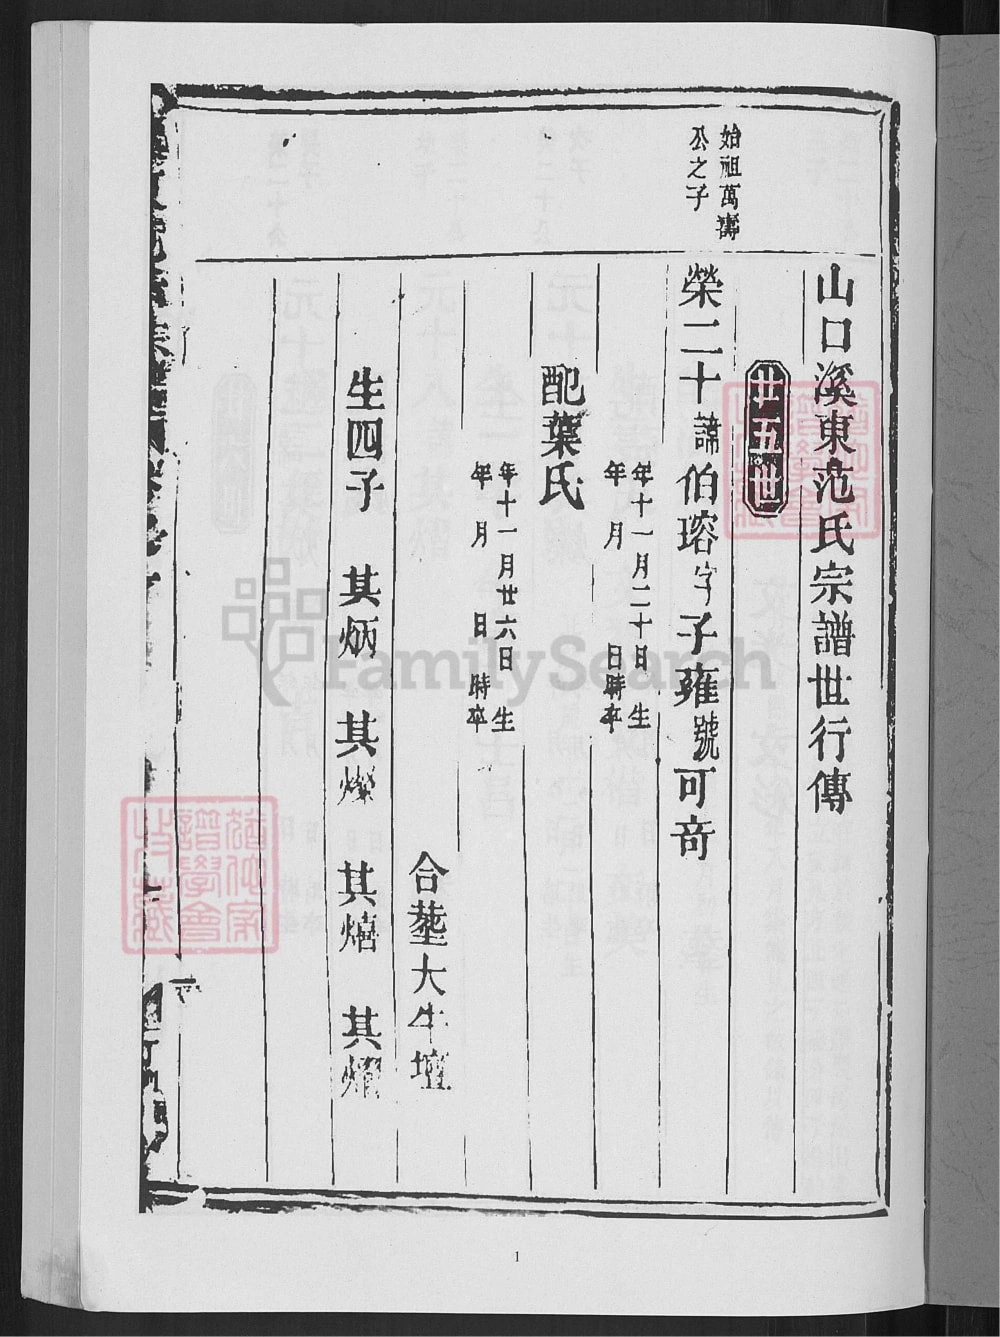 山口溪東范氏宗譜世行傳
廿五世
始祖萬壽
公之子
榮二十諱伯瑢字子雍號可奇
年十一月二十日 生
年 月 日時卒
配葉氏
年十一月廿六日 生
年 月 日 時卒
合塟大牛壇
生四子 其炳 其燦 其熺 其燿
FamilySearch
1